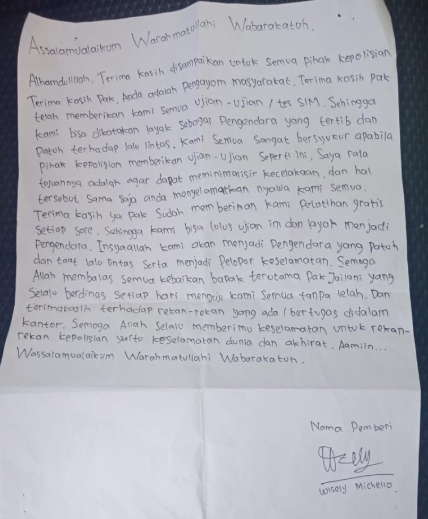 Assalamualaikum Warahmatullahi Wabarakatuh.
Alhamdulillah, Terima kasih disampaikan untuk semua pihak kepolisian
Terima kasih Pak, Anda adalah pengayom masyarakat. Terima kasih pak
telah memberikan kami semua ujian-ujian / tes SIM. Sehingga
kami bisa dikatakan layak sebagai Pengendara yang tertib dan
Patuh terhadap lalu lintas. Kami semua sangat bersyukur apabila
pihak kepolisian memberikan ujian-ujian seperti ini, Saya rasa
tujuannya adalah agar dapat meminimalisir kecelakaan, dan hal
tersebut sama saja anda menyelamatkan nyawa kami semua.
Terima kasih ya pak sudah memberikan kami Pelatihan gratis
setiap sore. Sehingga kami bisa lolus ujian ini dan layak menjadi
Pengendara. Insyaallah kami akan menjadi Pengendara yang patuh
dan taat lalu lintas serta menjadi Pelopor keselamatan. Semoga
Allah membalas semua kebaikan bapak terutama Pak Jailani yang
selalu berdinas setiap hari menguji kami semua tanpa lelah. Dan
terimakasih terhadap rekan-rekan yang ada / bertugas didalam
kantor. Semoga Allah selalu memberimu keselamatan untuk rekan-
rekan kepolisian yaitu keselamatan dunia dan akhirat. Aamiin...
Wassalamualaikum Warahmatullahi Wabarakatuh.
Nama Pemberi
Wisely Michello